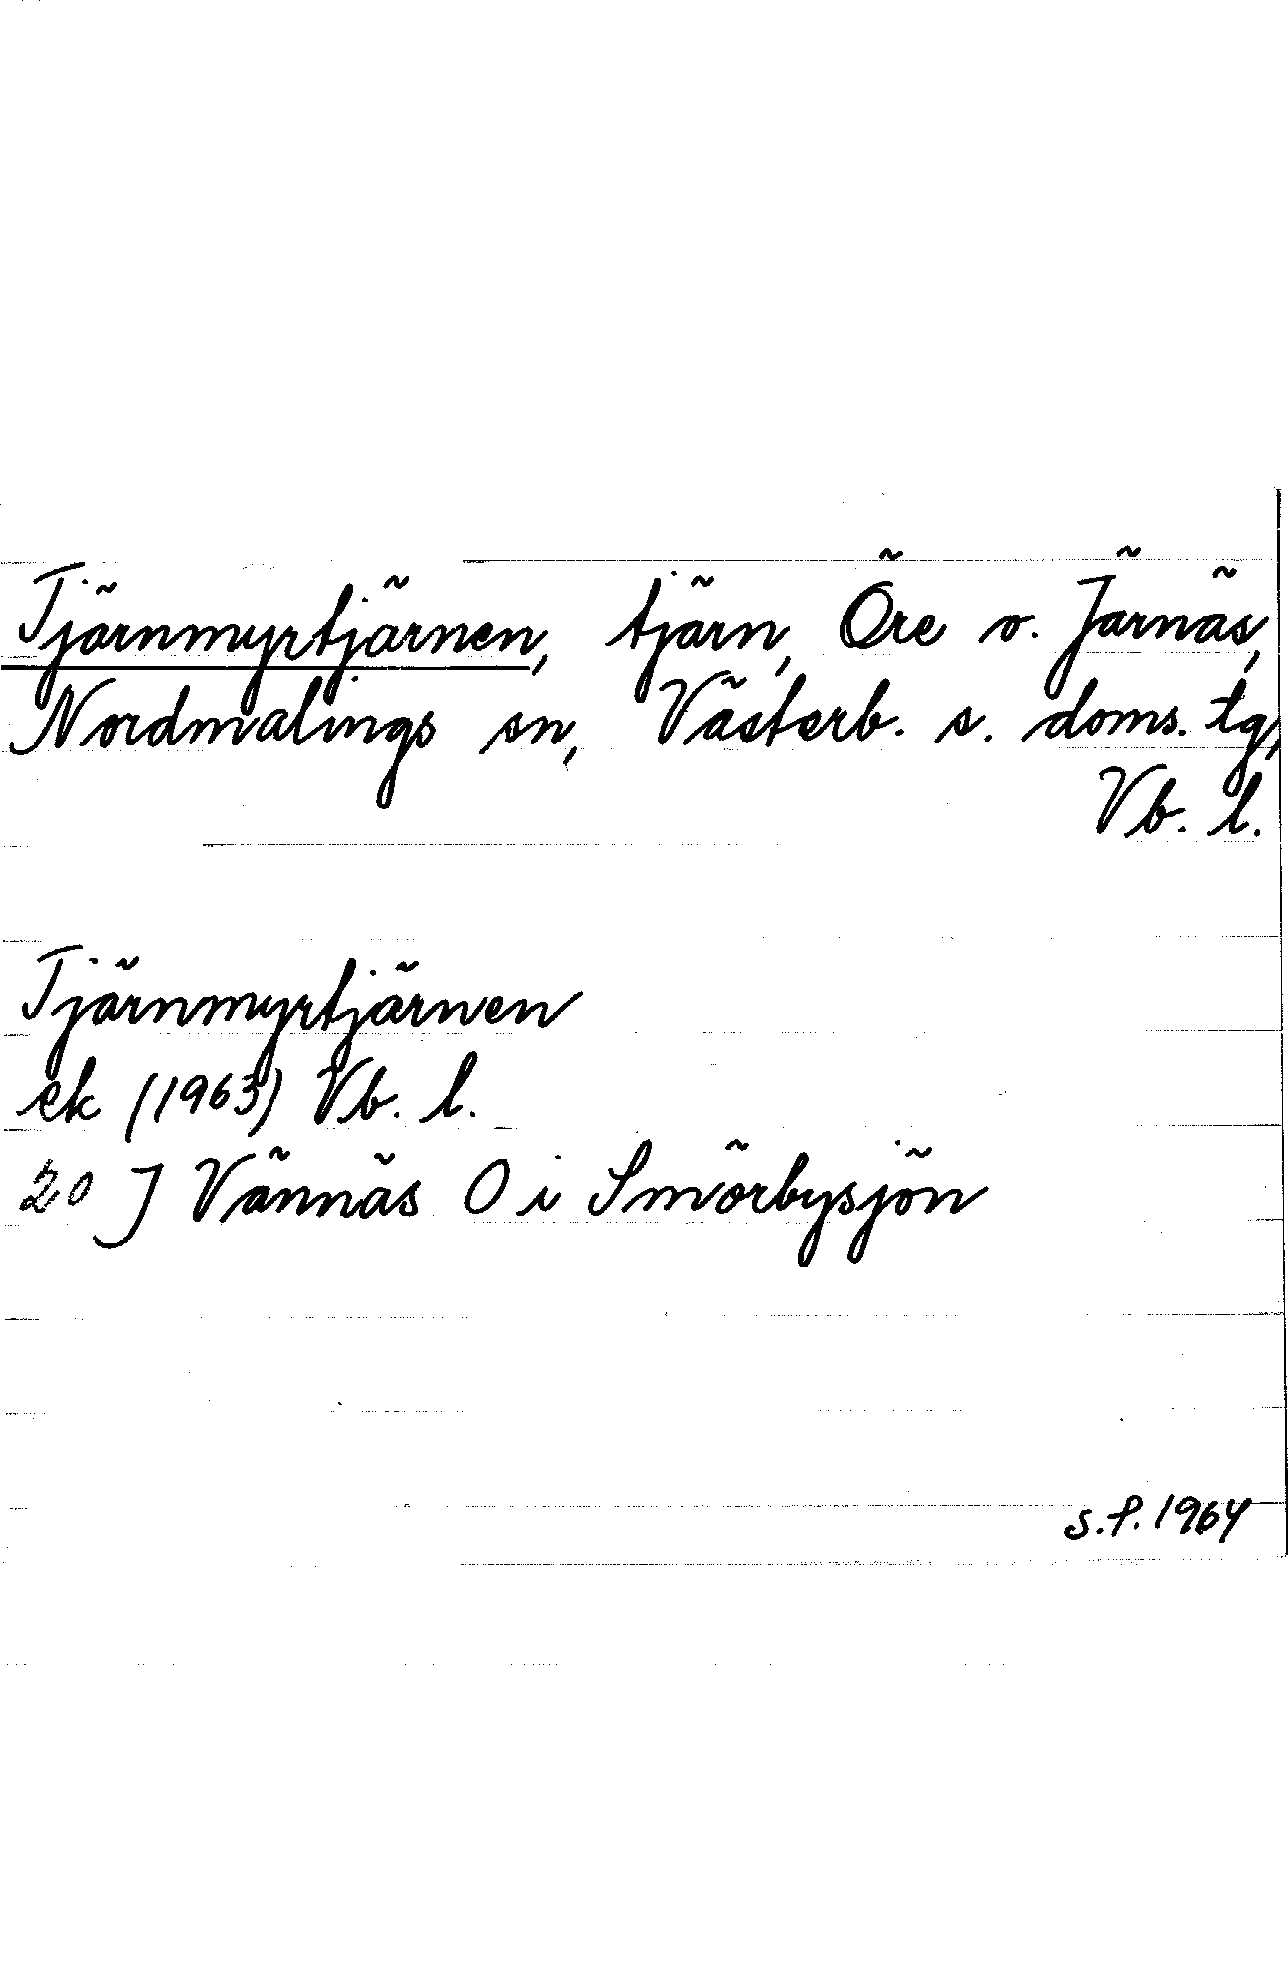 Tjärnmyrtjärnen, tjärn, Öre v. Järnäs,
Nordmalings sn, Västerb. s. doms. tg,
Vb. l.
Tjärnmyrtjärnen
ek (1963) Vb. l.
20 J Vännäs O i Smörbysjön
S.P. 1964